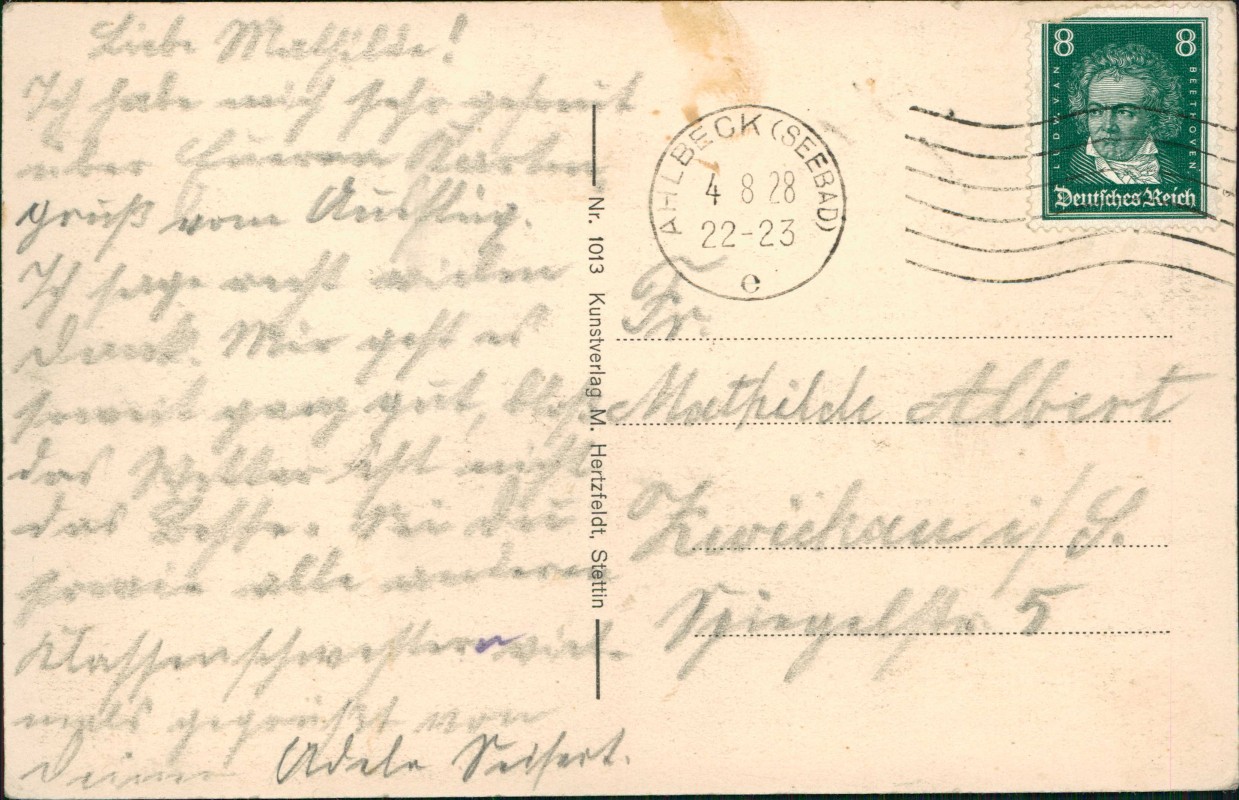 Liebe Mathilde!
Ich habe mich sehr gefreut
über Eueren Karten
gruß vom Ausflug.
Ich sage recht vielen
Dank. Mir geht es
soweit ganz gut, bloß
das Wetter ist nicht
das Beste. Sei Du
sowie alle anderen
Klassenschwestern viel-
mals gegrüßt von
Deiner Adele Seifert.
Nr. 1013 Kunstverlag M. Hertzfeldt, Stettin
AHLBECK (SEEBAD)
4 8 28
22-23
e
8 8
LUDW. VAN BEETHOVEN
Deutsches Reich
Fr.
Mathilde Albert
Zwickau i/S.
Spiegelstr. 5